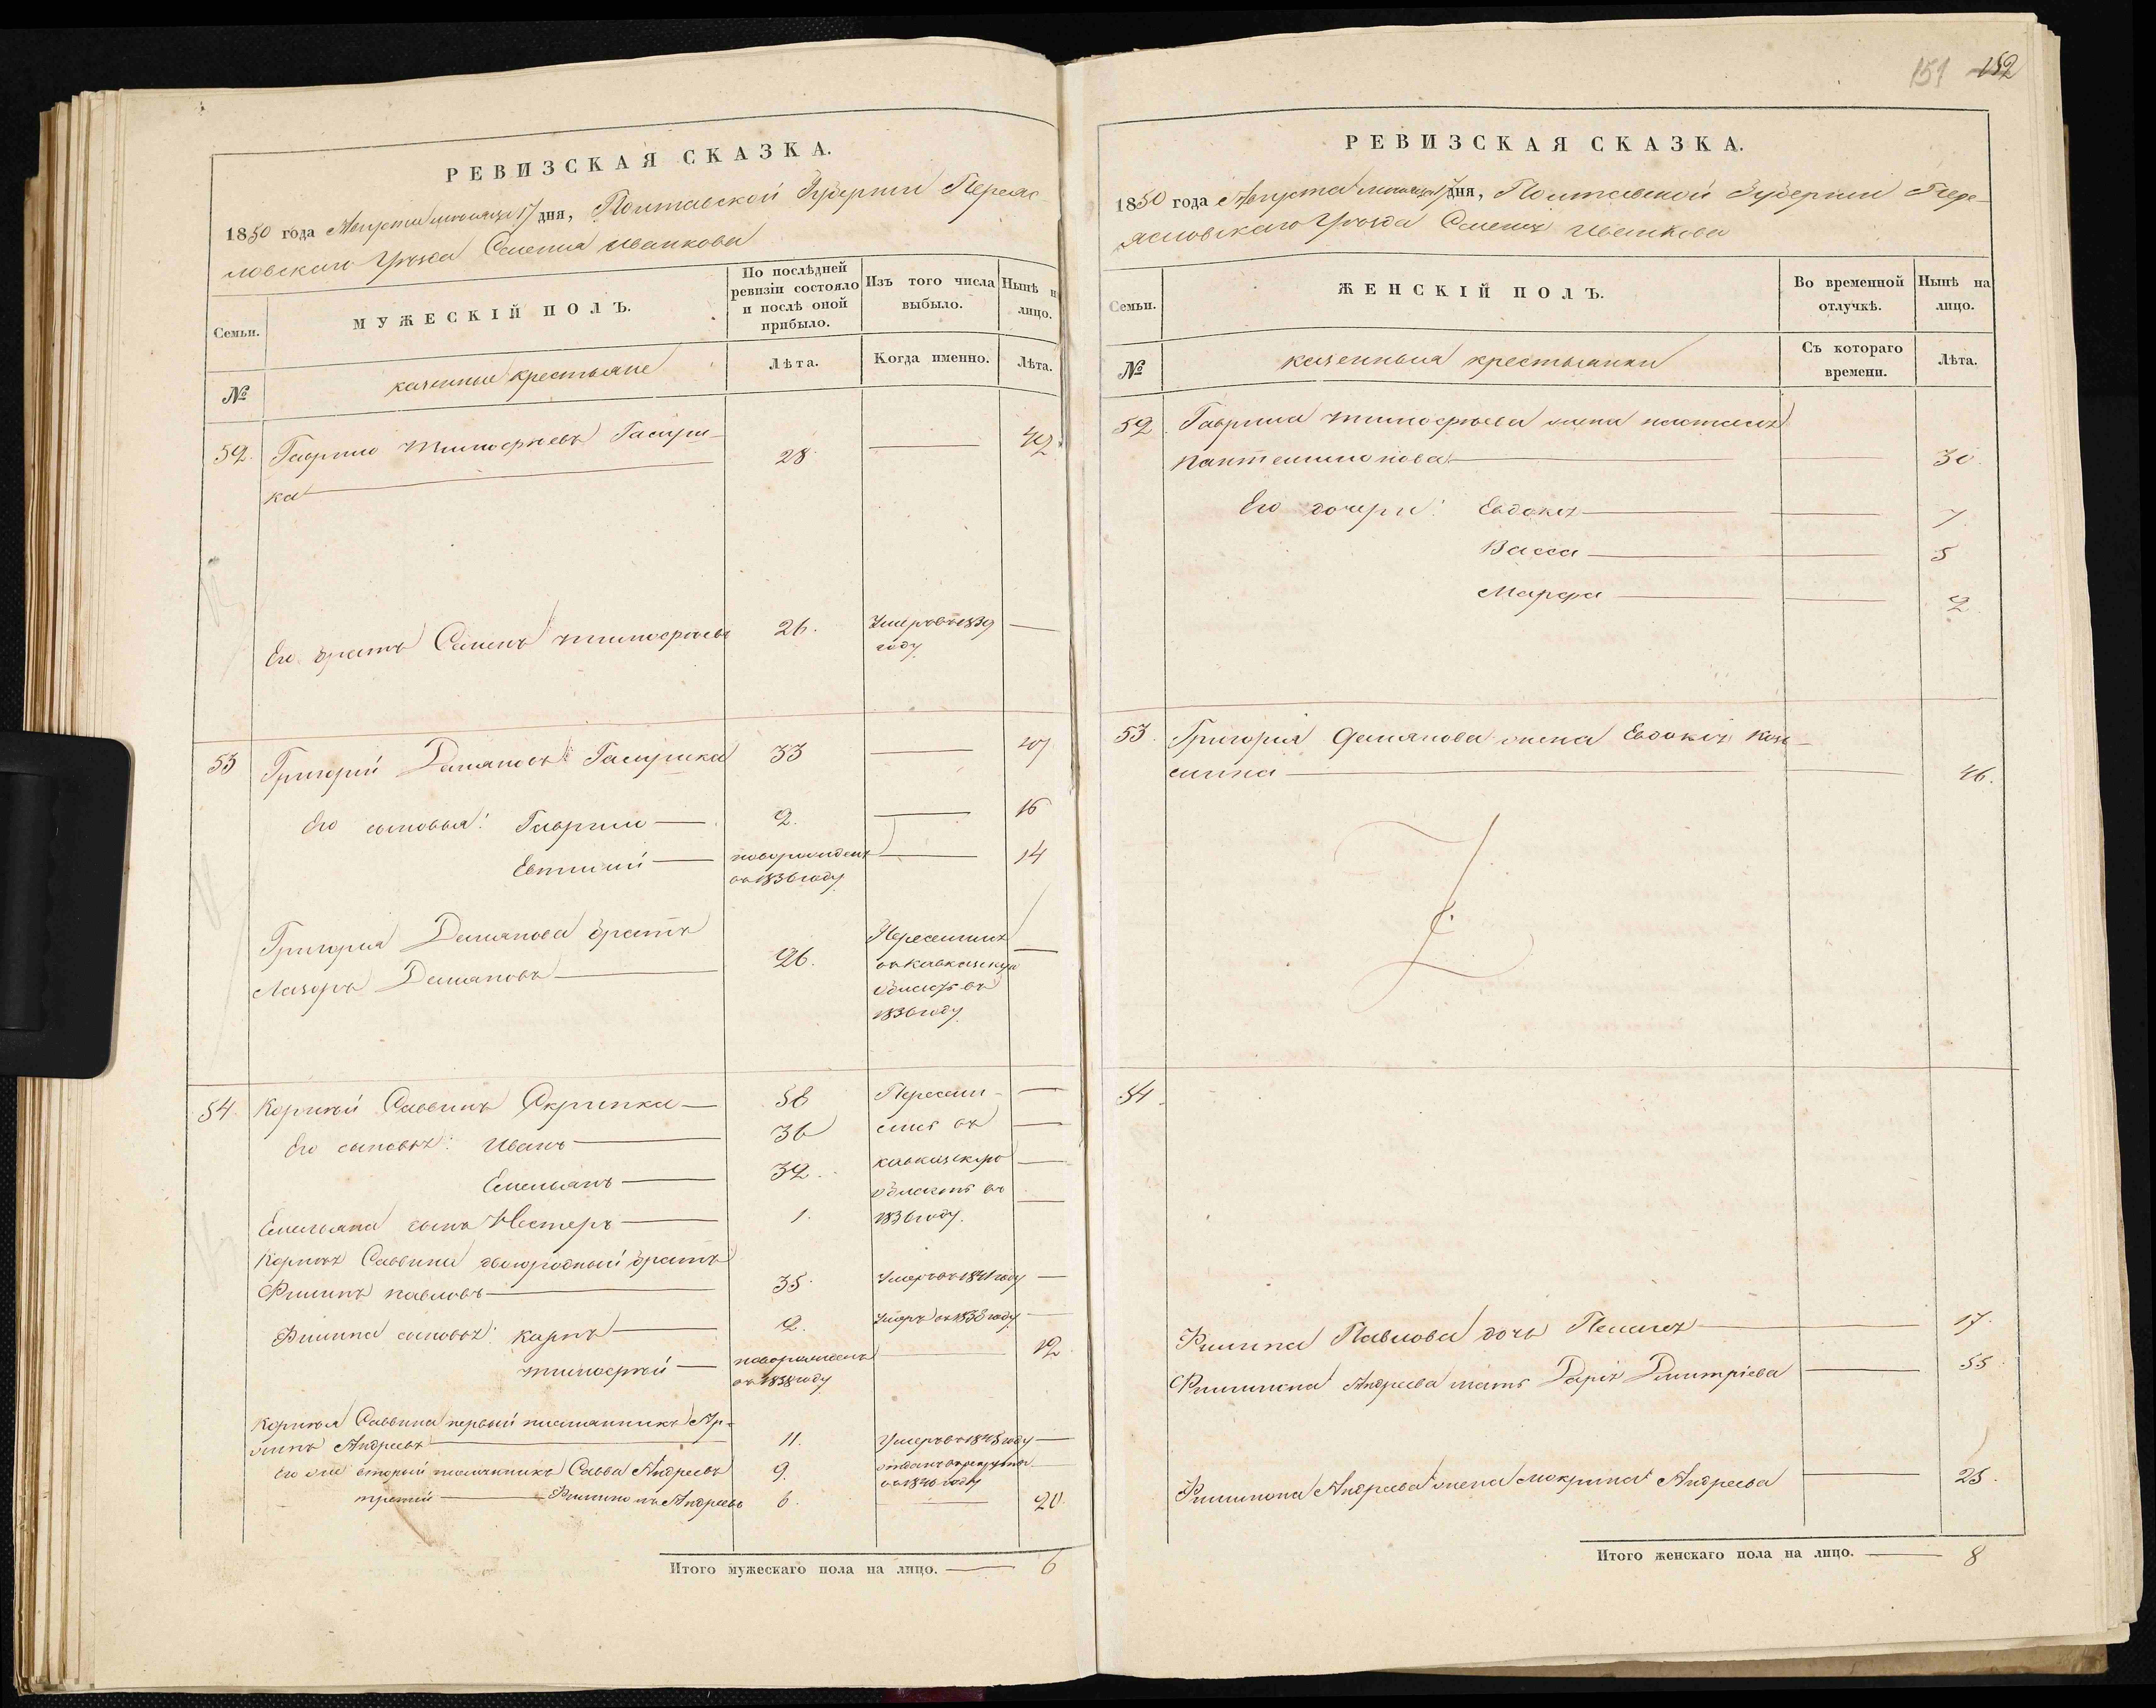 РЕВИЗСКАЯ СКАЗКА.
1850 года Августа месяца 17 дня, Полтавской Губернии Переяс-
ловского Уѣзда Селенія Иванкова
Семьи.
МУЖЕСКІЙ ПОЛЪ.
По послѣдней ревизіи состояло и послѣ оной прибыло.
Изъ того числа выбыло.
Нынѣ н лицо.
№
казенные крестьяне
Лѣта.
Когда именно.
Лѣта.
52. Гаврило Тимофѣевъ
ка 28 42
Его братъ Семенъ Тимофѣевъ 26. Умеръ въ 1839
году
53 Григорій Демяновъ 33 47
Его сыновья: Гаврило 2. 16
Евтихій новорожденъ 14
въ 1836 году
Григорія Демянова братъ
Лазоръ Демяновъ 26. Переселился
въ Кавказскую
область въ
1836 году
54. Корнѣй Саввинъ Скрипка 58 Пересел-
Его сыновья: Иванъ 36 ились въ
Емельянъ 32. кавказскую
область въ
Емельяна сынъ Нестеръ 1. 1836 году.
Корнѣя Саввина двоюродный братъ
Филипъ Павловъ 35. Умеръ въ 1841 году
Филипа сыновья: Карпъ 2. Умеръ въ 1838 году
Тимофѣй новорожденъ 12
въ 1838 году
Корнѣя Саввина первый племянникъ Ар-
Андреевъ 11. Умеръ въ 1848 году
Его же вторый племянникъ Савва Андреевъ 9. отданъ въ рекруты
въ 1846 году
третій Филимонъ Андреевъ 6. 20
Итого мужескаго пола на лицо. 6
151 152
РЕВИЗСКАЯ СКАЗКА.
1850 года Августа месяца 17 дня, Полтавской Губерніи Пере-
яславскаго Уѣзда Селенія Иванкова
Семьи.
ЖЕНСКІЙ ПОЛЪ.
Во временной отлучкѣ.
Нынѣ на лицо.
№
казенныя крестьянки
Съ котораго времени.
Лѣта.
52. Гаврила Тимофѣева жена
Пантелимонова 30.
Его дочери: Евдокія 7
Васса 5
Марфа 2
53. Григорія Демянова жена Евдокія
46.
54.
Филипа Павлова дочь Пелагея 17.
Филимона Андреева мать Дарія Дмитріева 55
Филимона Андреева жена Мокрина Андреева 25.
Итого женскаго пола на лицо. 8